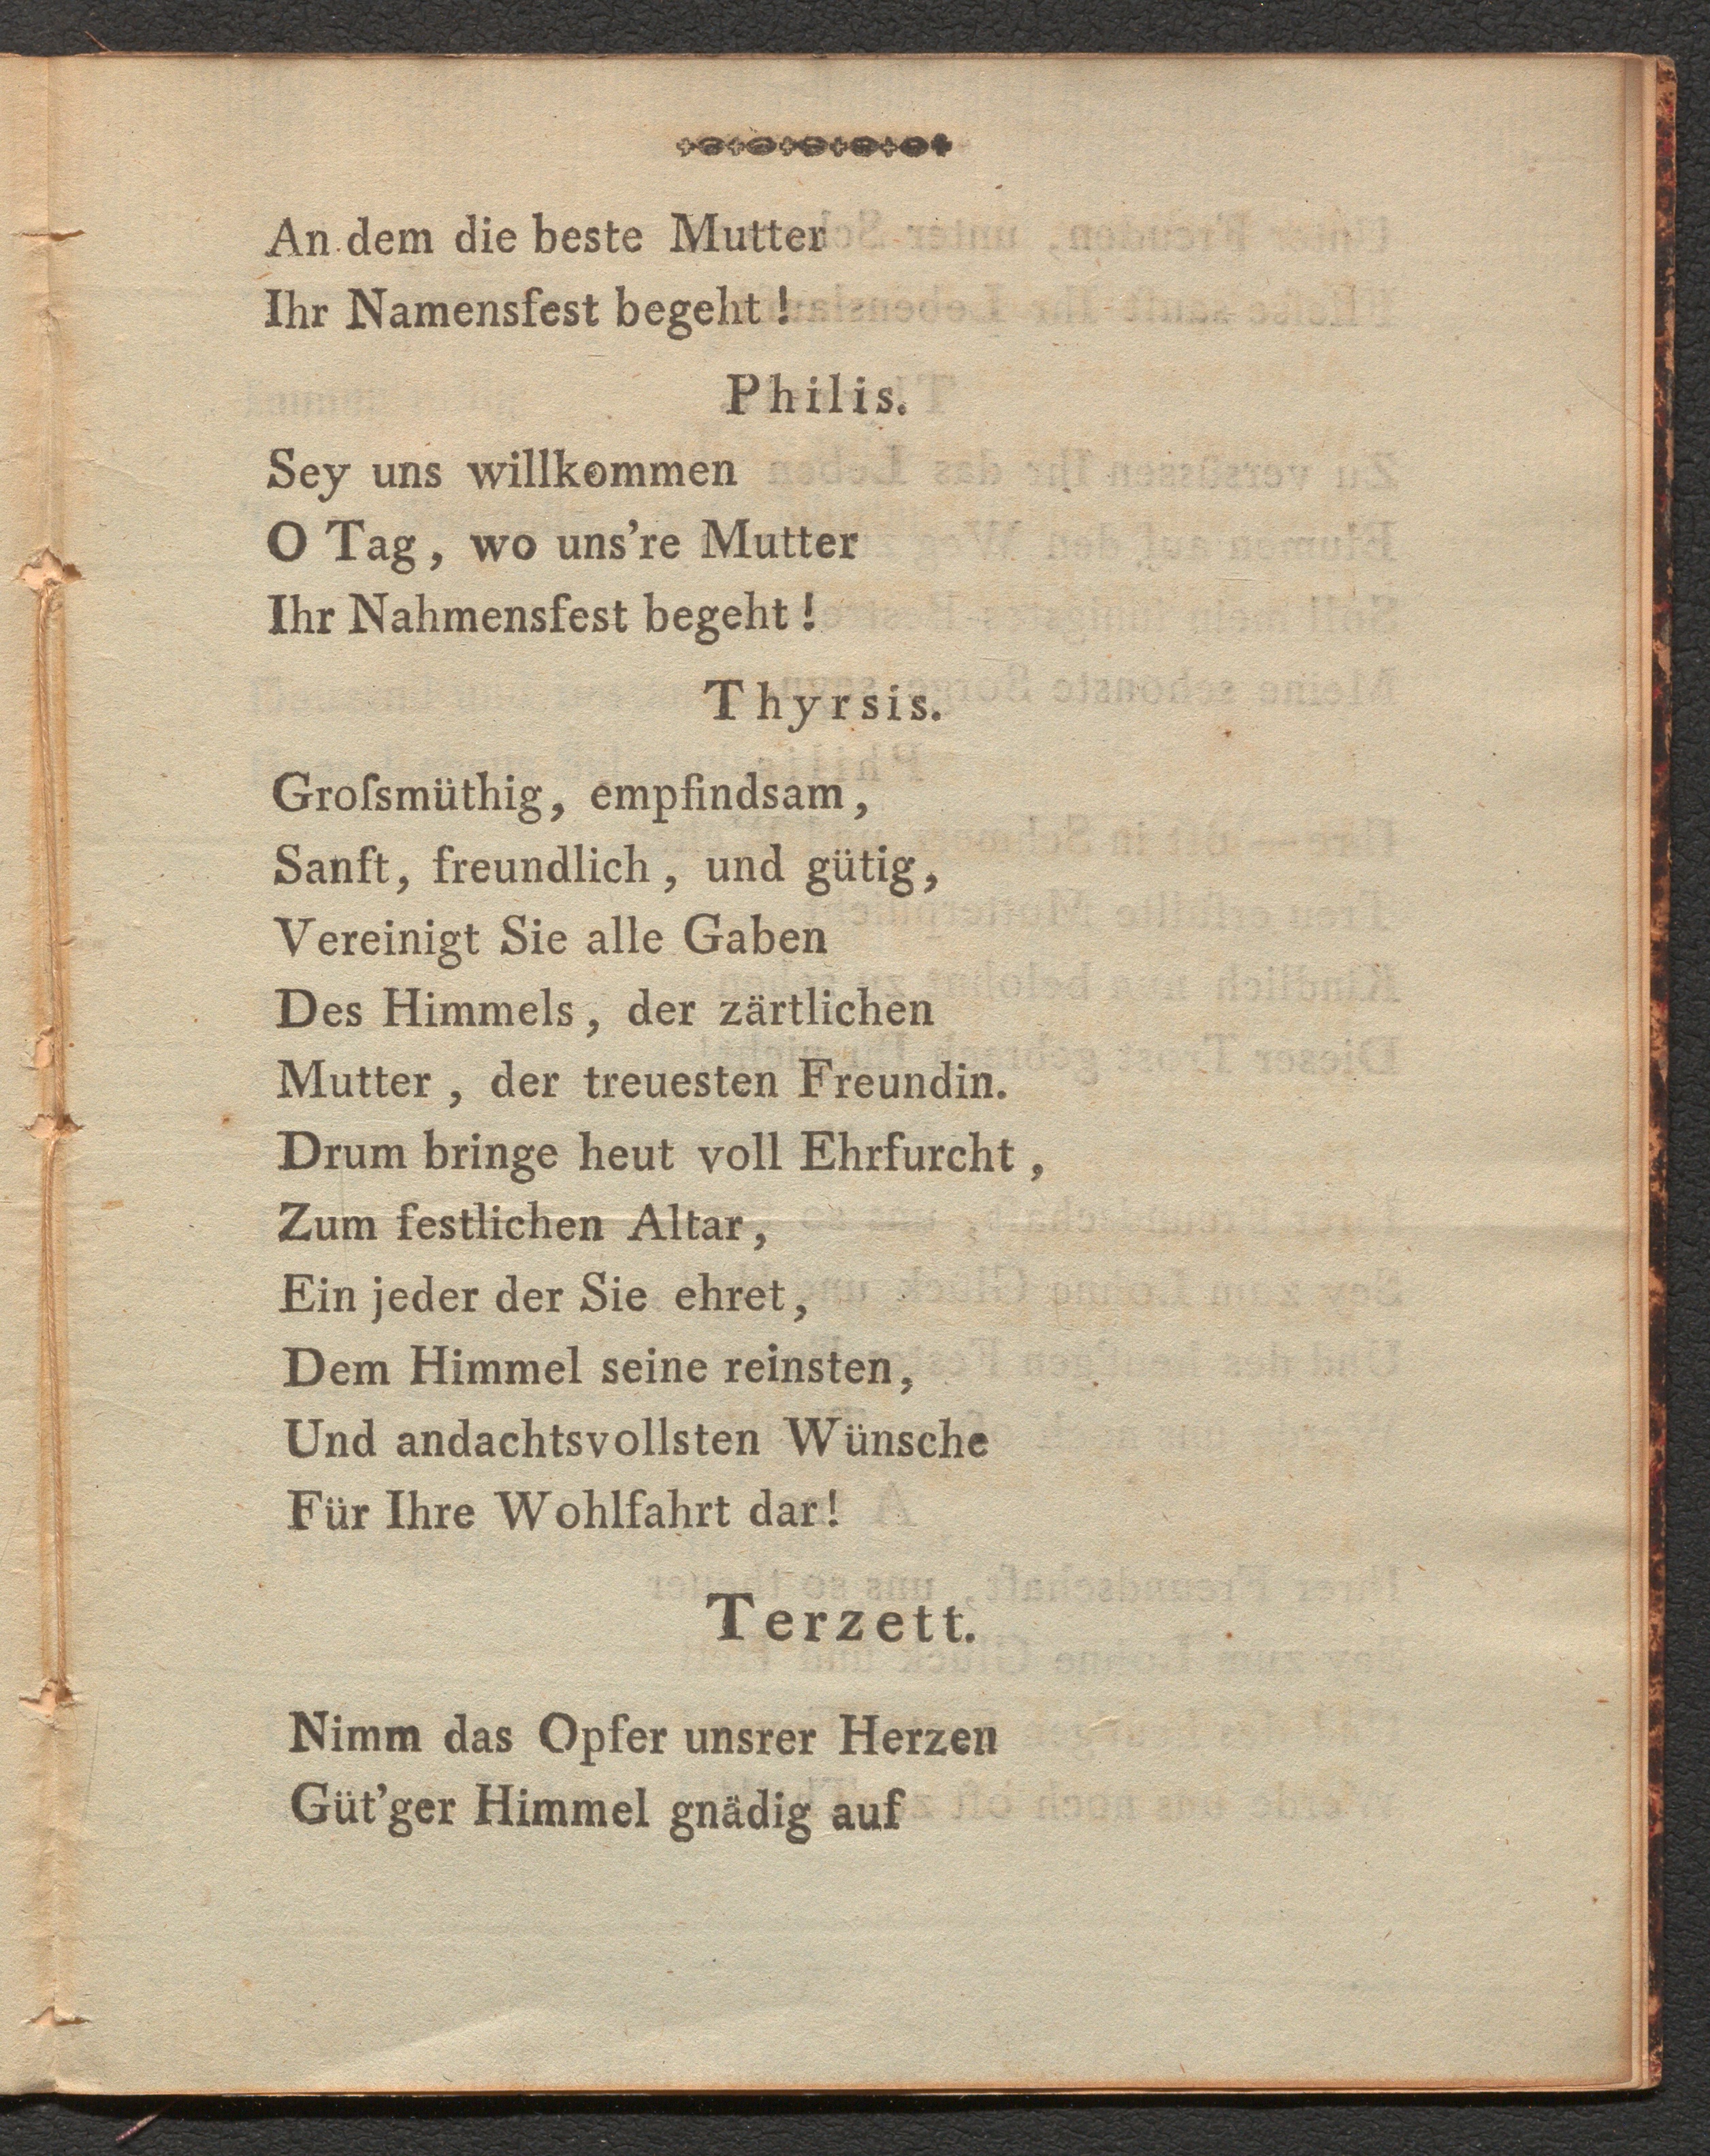 An dem die beste Mutter
Ihr Namensfest begeht!
Philis.
Sey uns willkommen
O Tag, wo uns're Mutter
Ihr Nahmensfest begeht!
Thyrsis.
Groſsmüthig, empfindsam,
Sanft, freundlich, und gütig,
Vereinigt Sie alle Gaben
Des Himmels, der zärtlichen
Mutter, der treuesten Freundin.
Drum bringe heut voll Ehrfurcht,
Zum festlichen Altar,
Ein jeder der Sie ehret,
Dem Himmel seine reinsten,
Und andachtsvollsten Wünsche
Für Ihre Wohlfahrt dar!
Terzett.
Nimm das Opfer unsrer Herzen
Güt'ger Himmel gnädig auf